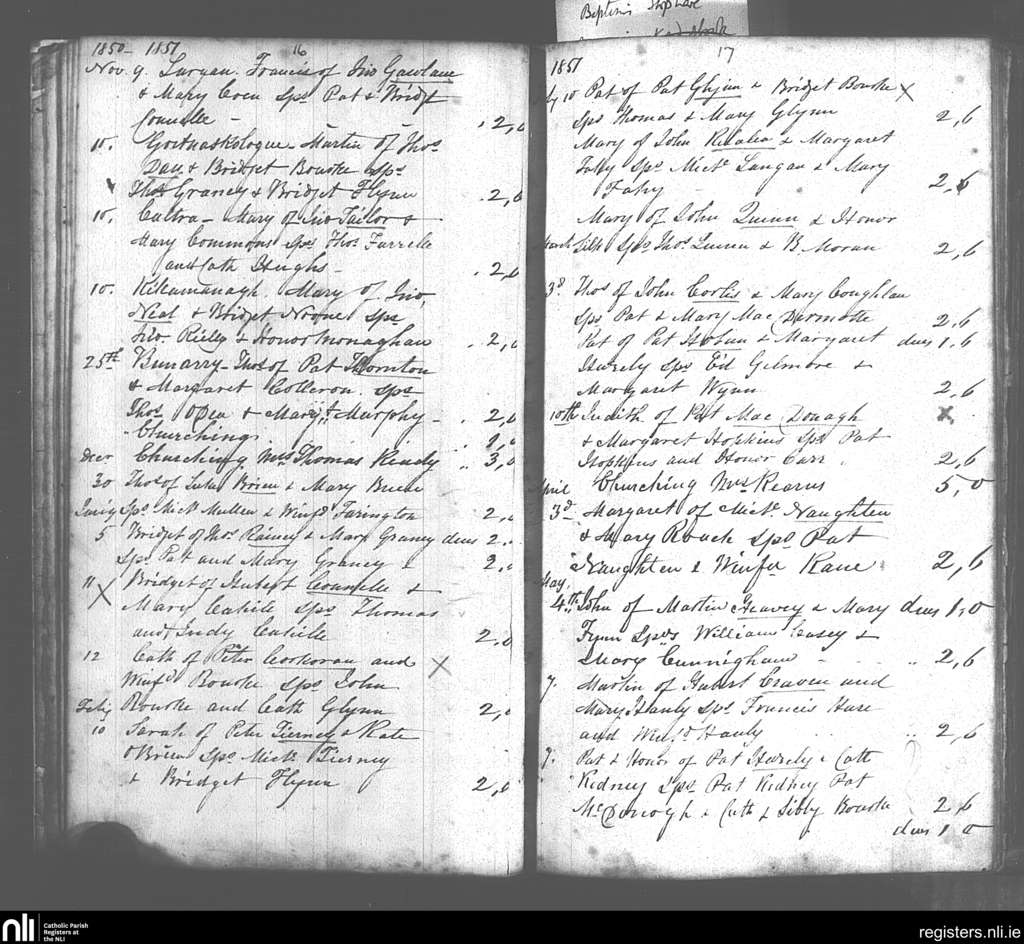 Baptisms
1850 - 1851 16
Nov. 9. Lurgan. Francis of Jno
& Mary Coen Sps Pat & Bridgt
2,6
10. Martin of Thos
Day & Bridget Bourke Sps
Thos Graney & Bridget Flynn 2,6
10. Caltra - Mary of Jno Tailor &
Mary Commons Sps Thos Farrell
and Cath Hughs - 2,6
10. Kilcamanagh. Mary of Jno.
Neal & Bridget Noone Sps
Jno. Reilly & Honor Monaghan 2,6
25th Bunarry - Thos of Pat Thornton
& Margaret Colleron Sps
Thos ODea & Margt Murphy - 2,6
Churching
Decr Churching Mrs Thomas Ready 3,0
30 Thos of Luke & Mary
Sps Mick Mullen & Winfd Farington 2,
5 Bridget of Thos Rainey & Mary Graney dues 2.
Sps Pat and Mary Graney &
11 X Bridget of Hubert &
Mary Cahill Sps Thomas
and Judy Cahill 2,0
12 Cath of Peter Corkoran and X
Winfd Bourke Sps John
Rourke and Cath Glynn 2,
10 Sarah of Peter Tierney & Kate
OBrien Sps Mick Tierney
& Bridget Flynn 2,6
17
1851
10 Pat of Pat Glynn & Bridget Bourke X
Sps Thomas & Mary Glynn 2,6
Mary of John & Margaret
Fahy Sps Micl Langan & Mary
Fahy 2,6
Mary of John Quinn & Honor
March Silk Sps Thos Quinn & B. Moran 2,6
3d Thos of John Cortis & Mary Coughlan
Sps Pat & Mary Mac Dermotte 2,6
Pat of Pat & Margaret dues 1,6
Hurely Sps Ed Gilmore &
Margaret Wynn 2,6
10th Judith of Pat Mac Donagh X
& Margaret Hopkins Sps Pat
Hopkins and Honor Carr. 2,6
April Churching Mrs Kearns 5,0
3d Margaret of Micl. Naughten
& Mary Roach Sps Pat
Naughten & Winfd Kane 2,6
May,
4th John of Martin Heavey & Mary dues 1,0
Fynn Spss William Casey &
Mary Cunnigham - 2,6
7. Martin of Hubert Craven and
Mary Hanly Sps Francis Hare
and Winfd Hanly 2,6
9. Pat & Honor of Pat Hurely & Cath
Kidney Sps Pat Kidney Pat
McDonogh & Cath & Sibby Bourke 2,6
dues 1 0
nli Catholic Parish
Registers at
the NLI
registers.nli.ie